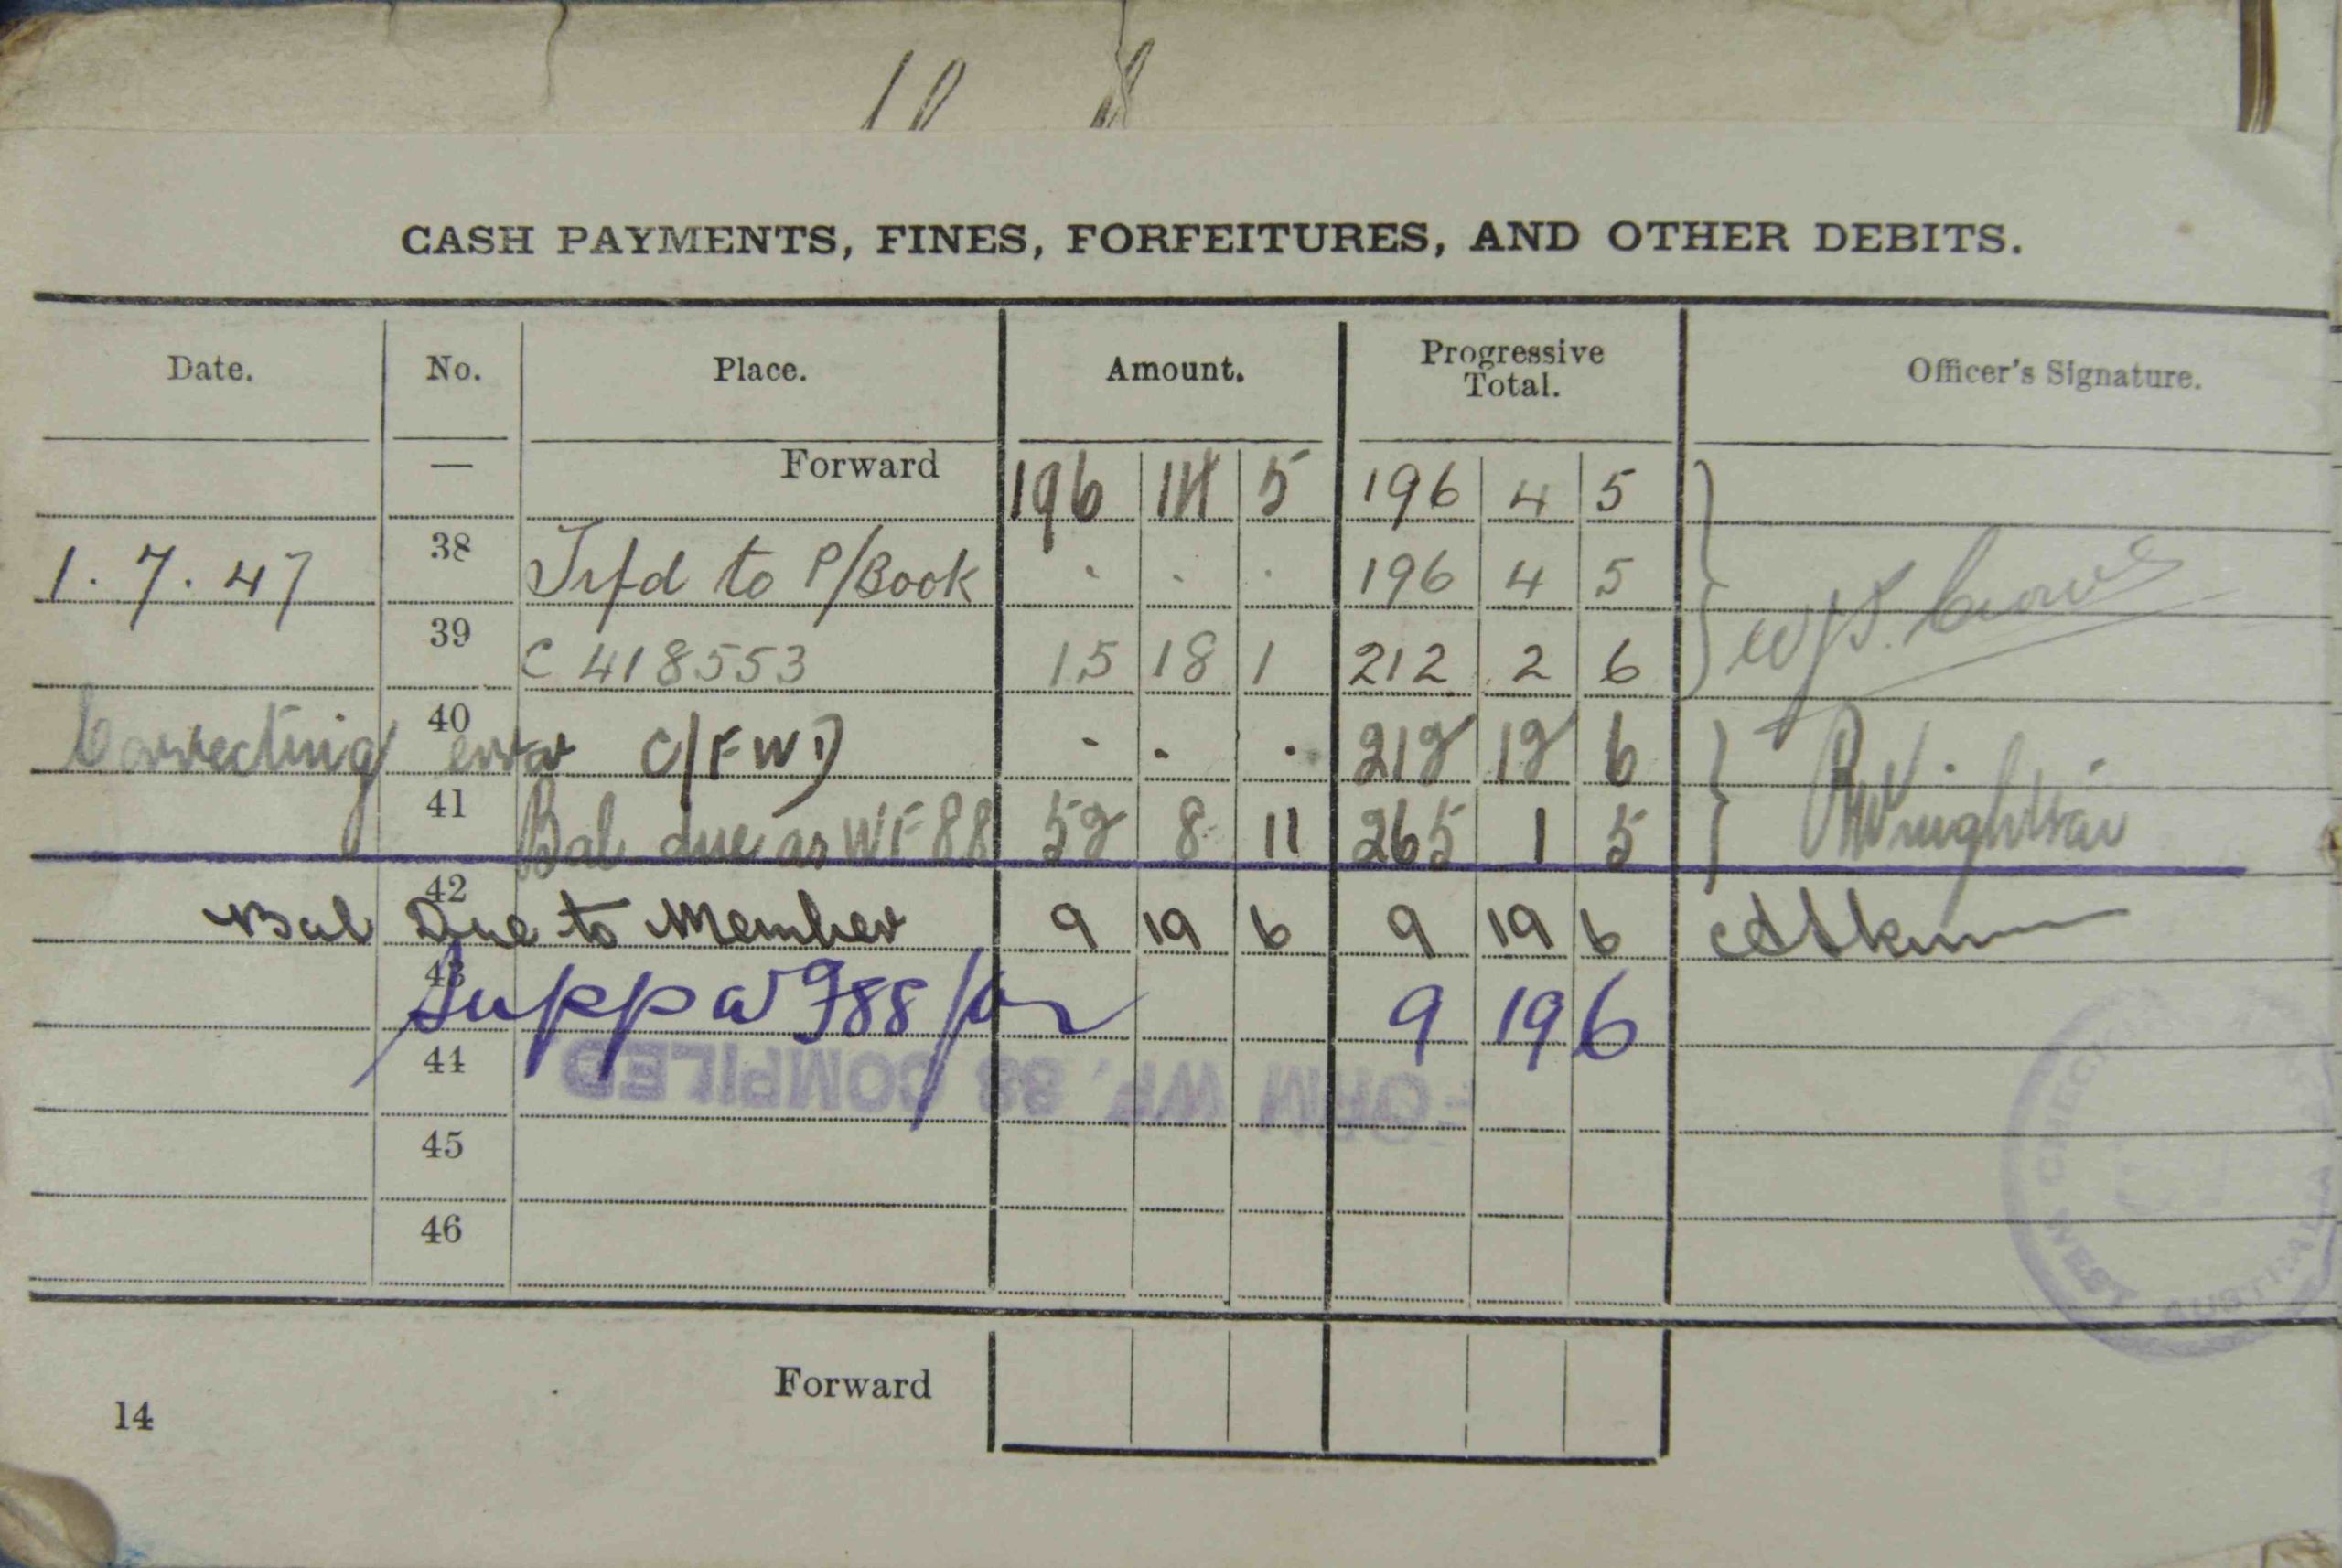 CASH PAYMENTS, FINES, FORFEITURES, AND OTHER DEBITS.
Date. No. Place. Amount. Progressive Total. Officer's Signature.
— Forward 196 14 5 196 4 5
1.7.47 38 Trfd to P/Book . . . 196 4 5
39 C 418553 15 18 1 212 2 6
Correcting 40 error C/FWD . . . 212 12 6
41 Bal due as WF 88 52 8 11 265 1 5
42 Bal Due to Member 9 19 6 9 19 6
43 Supp W F88 9 19 6
44 FORM WF. 88 COMPILED
45
46
WEST AUSTRALIA
Forward
14